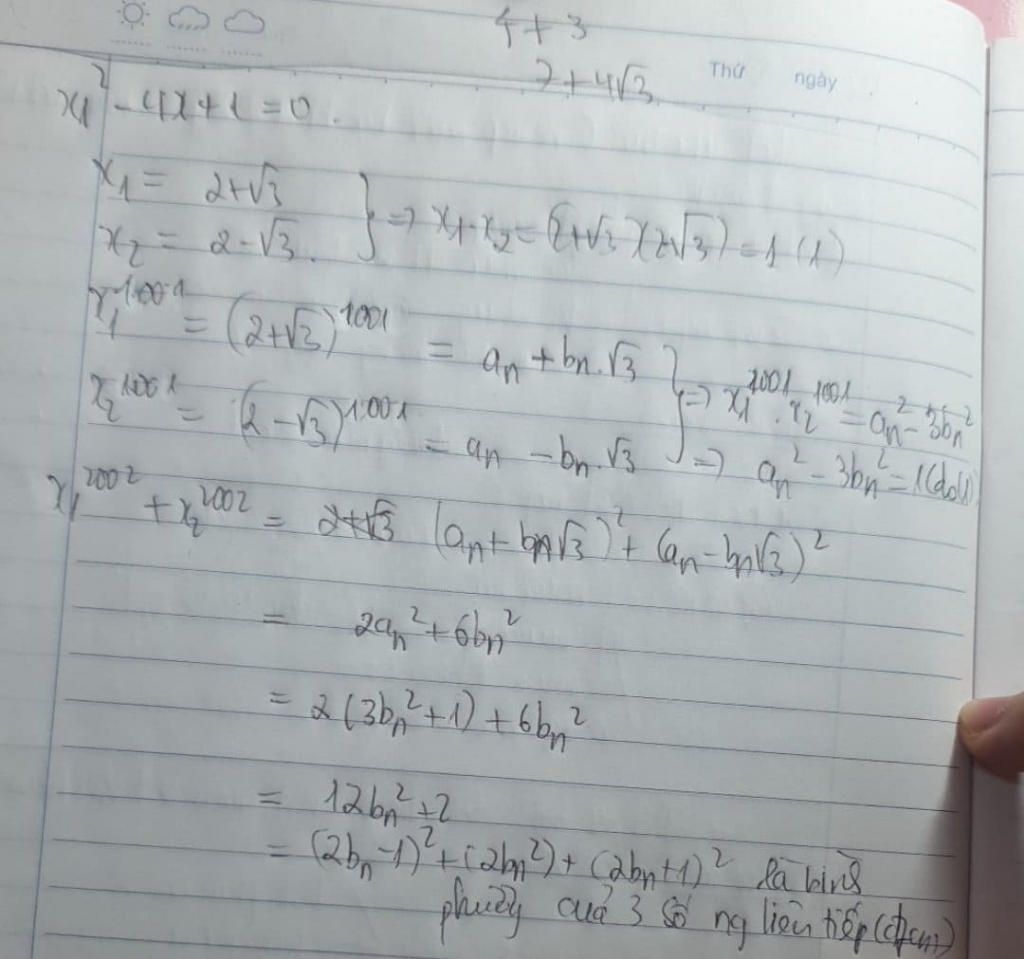 4 + 3
7 + 4√3
Thứ ngày
x² - 4x + 1 = 0.
x₁ = 2+√3
x₂ = 2-√3.
} => x₁.x₂ = (2+√3)(2-√3) = 1 (1)
x₁¹⁰⁰¹ = (2+√3)¹⁰⁰¹ = aₙ + bₙ.√3
x₂¹⁰⁰¹ = (2-√3)¹⁰⁰¹ = aₙ - bₙ.√3
} => x₁¹⁰⁰¹.x₂¹⁰⁰¹ = aₙ² - 3bₙ²
=> aₙ² - 3bₙ² = 1 (do(1))
x₁²⁰⁰² + x₂²⁰⁰² = (aₙ + bₙ√3)² + (aₙ - bₙ√3)²
= 2aₙ² + 6bₙ²
= 2(3bₙ² + 1) + 6bₙ²
= 12bₙ² + 2
= (2bₙ - 1)² + (2bₙ²) + (2bₙ + 1)² là bình
phương của 3 số ng liên tiếp (đpcm)